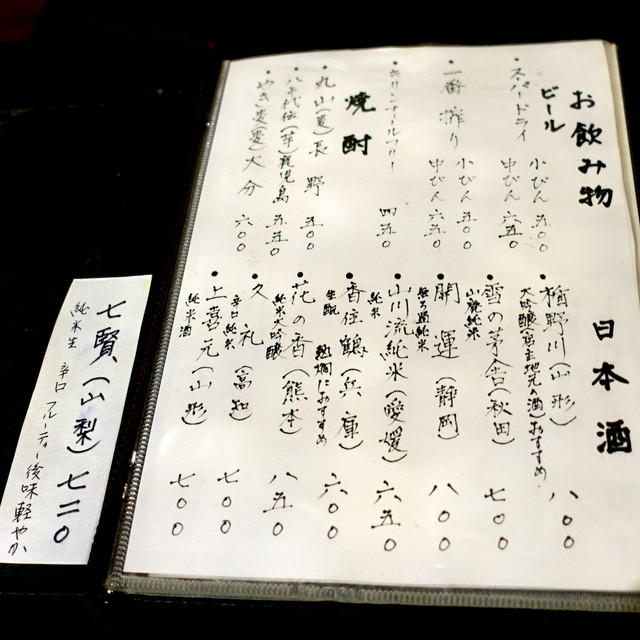 お飲み物
ビール
・スーパードライ 小びん 五〇〇
中びん 六五〇
・一番搾り 小びん 五〇〇
中びん 六五〇
・オールフリー 四五〇
焼酎
・丸山(麦)長野 五〇〇
・八千代伝(芋)鹿児島 五五〇
・やき麦(麦)大分 六〇〇
日本酒
・楯野川(山形) 八〇〇
大吟醸 店主地元の酒おすすめ
・雪の茅舎(秋田) 七〇〇
山廃純米
・開運(静岡) 八〇〇
純米
・山川流純米(愛媛) 六五〇
純米
・香住鶴(兵庫) 六〇〇
生酛 熱燗におすすめ
・花の香(熊本) 八五〇
純米大吟醸
・久礼(高知) 七〇〇
辛口純米
・上喜元(山形) 七〇〇
純米酒
七賢(山梨) 七二〇
純米生 辛口 フルーティー後味軽やか